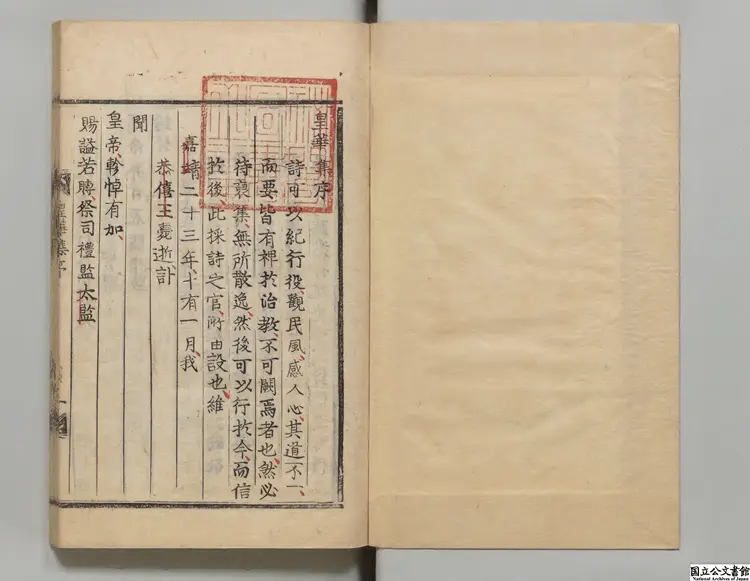 皇華集序
詩可以紀行役、觀民風、感人心、其道不一、
而要皆有裨於治敎、不可闕焉者也、然必
待裒集、無所散逸、然後可以行於今、而信
於後、此採詩之官、所由設也、維
嘉靖二十三年、十有一月、我
恭僖王薨逝訃
聞
皇帝、軫悼有加、
賜諡若賻、祭司禮監太監
皇華集序
一
国立公文書館
National Archives of Japan